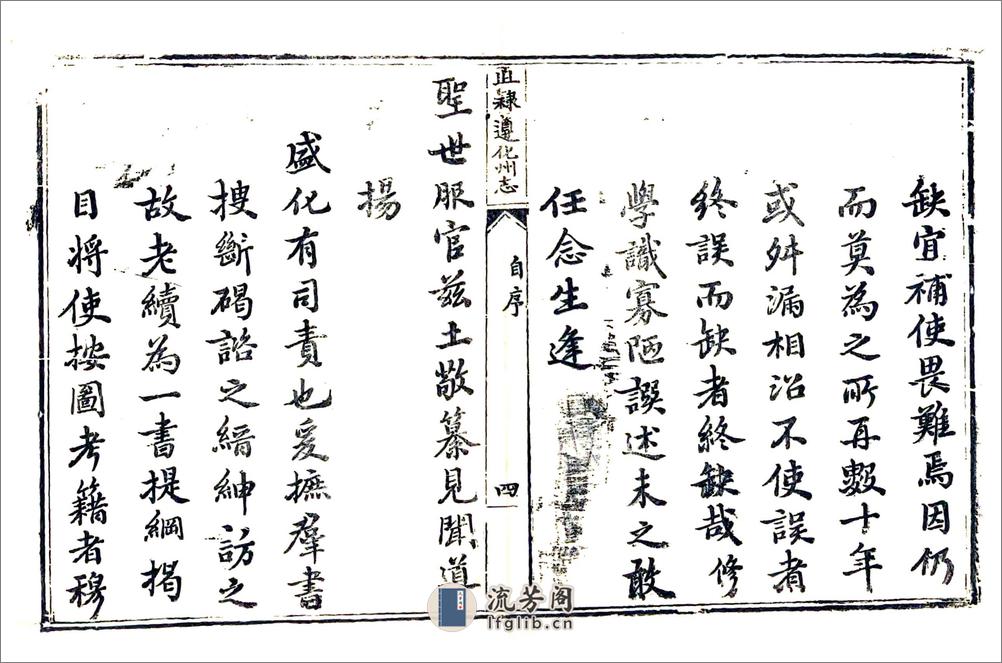 缺宜補使畏難焉因仍
而莫為之所再數十年
或舛漏相沿不使誤者
終誤而缺者終缺哉修
學識寡陋譔述未之敢
任念生逢
直隸遵化州志
自序
四
聖世服官兹土敬纂見聞道
揚
盛化有司責也爰摭羣書
搜斷碣諮之縉紳訪之
故老續為一書提綱揭
目將使按圖考籍者穆
流芳阁
lfglib.cn